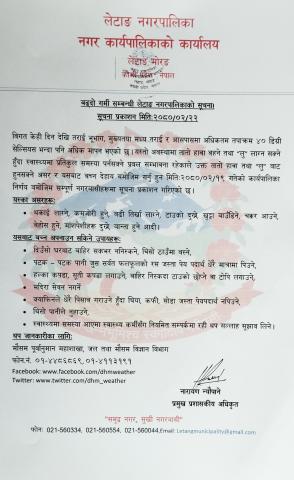 लेटाङ नगरपालिका
नगर कार्यपालिकाको कार्यालय
लेटाङ मोरङ
कोशी प्रदेश, नेपाल
बढ्दो गर्मी सम्बन्धी लेटाङ नगरपालिकाको सूचना।
सूचना प्रकाशन मिति:२०८०/०२/२३
विगत केही दिन देखि तराई भूभाग, मुख्यतया मध्य तराई र आसपासमा अधिकतम तापक्रम ४० डिग्री
सेल्सियस भन्दा पनि अधिक मापन भएको छ। यस्तो अवस्थामा तातो हावा बहने तथा "लु" लाग्न सक्ने
हुँदा स्वास्थ्यमा प्रतिकुल समस्या पर्नसक्ने प्रवल सम्भावना रहेकाले उक्त तातो हावा तथा "लु" बाट
हुनसक्ने असर र यसबाट बच्न देहाय बमोजिम गर्नु हुन मिति २०८०/०२/१९ गतेको कार्यपालिका
निर्णय बमोजिम सम्पूर्ण नगरबासीहरूमा सूचना प्रकाशन गरिएको छ।
यस्का असरहरू:
• थकाई लाग्ने, कमजोरी हुने, बढी तिर्खा लाग्ने, टाउको दुख्ने, खुट्टा बाउँडिने, चक्कर आउने,
बेहोस हुने, मांशपेशीहरू दुख्ने, बान्ता हुने आदी।
यसबाट बच्न अपनाउन सकिने उपायहरू:
• दिउँसो घरबाट बाहिर सकभर ननिस्कने, चिसो ठाउँमा बस्ने,
• पटक – पटक पानी जुस सर्वत फलफूलको रस जस्ता पेय पदार्थ धेरै मात्रामा पिउने,
• हल्का कपडा, सुती कपडा लगाउने, बाहिर निस्कदा टाउको छोप्ने वा टोपि लगाउने,
• मदिरा सेवन नगर्ने
• क्याफिनले धेरै पिसाब गराउने हुँदा चिया, कफी, सोडा जस्ता पेयपदार्थ नपिउने,
• चिसो पानीले नुहाउने,
• स्वास्थ्यमा समस्या आएमा स्वास्थ्य कर्मीसँग नियमित सम्पर्कमा रही थप सल्लाह सुझाव लिने।
थप जानकारीका लागि:
मौसम पूर्वानुमान महाशाखा, जल तथा मौसम विज्ञान विभाग
फोन.नं. ०१-४४८६८६९, ०१-४११३१९१
Facebook: www.facebook.com/dhmweather
Twitter: www.twitter.com/dhm_weather
नारायण न्यौपाने
प्रमुख प्रशासकीय अधिकृत
"समृद्ध नगर, सुखी नगरवासी"
फोन: 021-560334, 021-560554, 021-560044,Email: Letangmunicipality@gmail.com